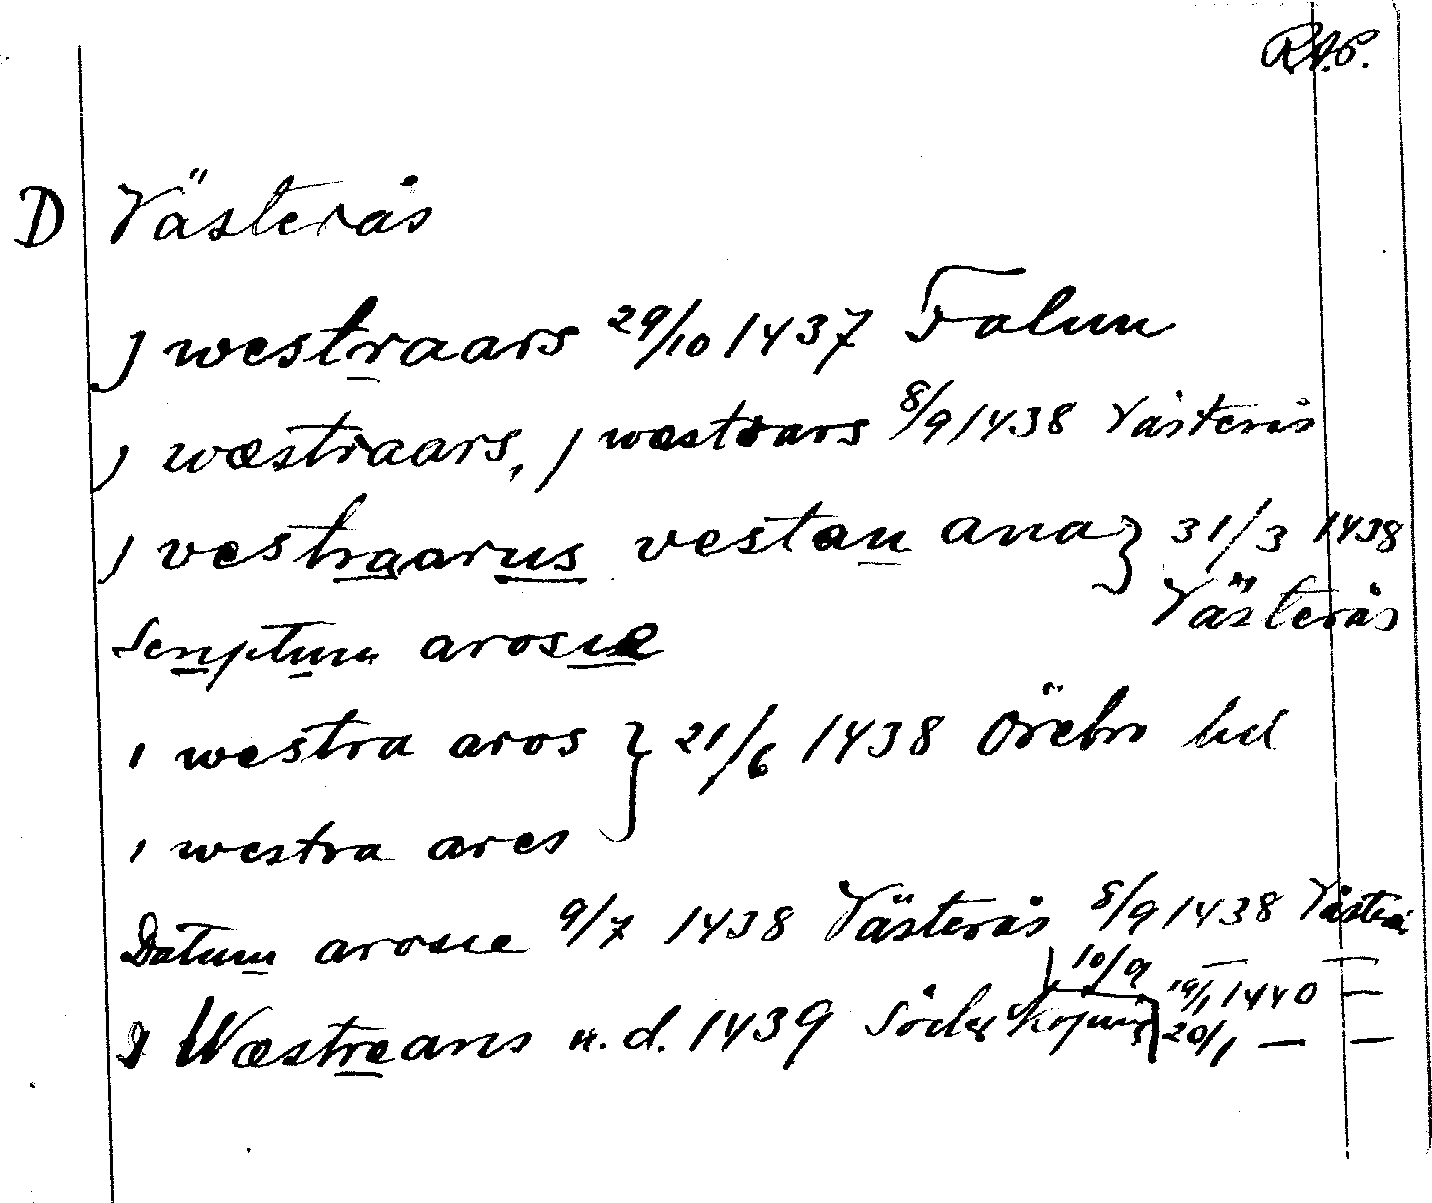 R.A.P.
D Västerås
J westraars 29/10 1437 Falun
J wæstraars, J westrars 8/9 1438 Västerås
J vestraarus vestan ana } 31/3 1438
Västerås
Scriptum arosie
i westra aros } 21/6 1438 Örebro
i westra ares
Datum arosie 9/7 1438 Västerås 8/9 1438 Västerås
10/9 — —
J Wæstreaars u. d. 1439 Söderköping 19/1 1440 —
20/1 — —